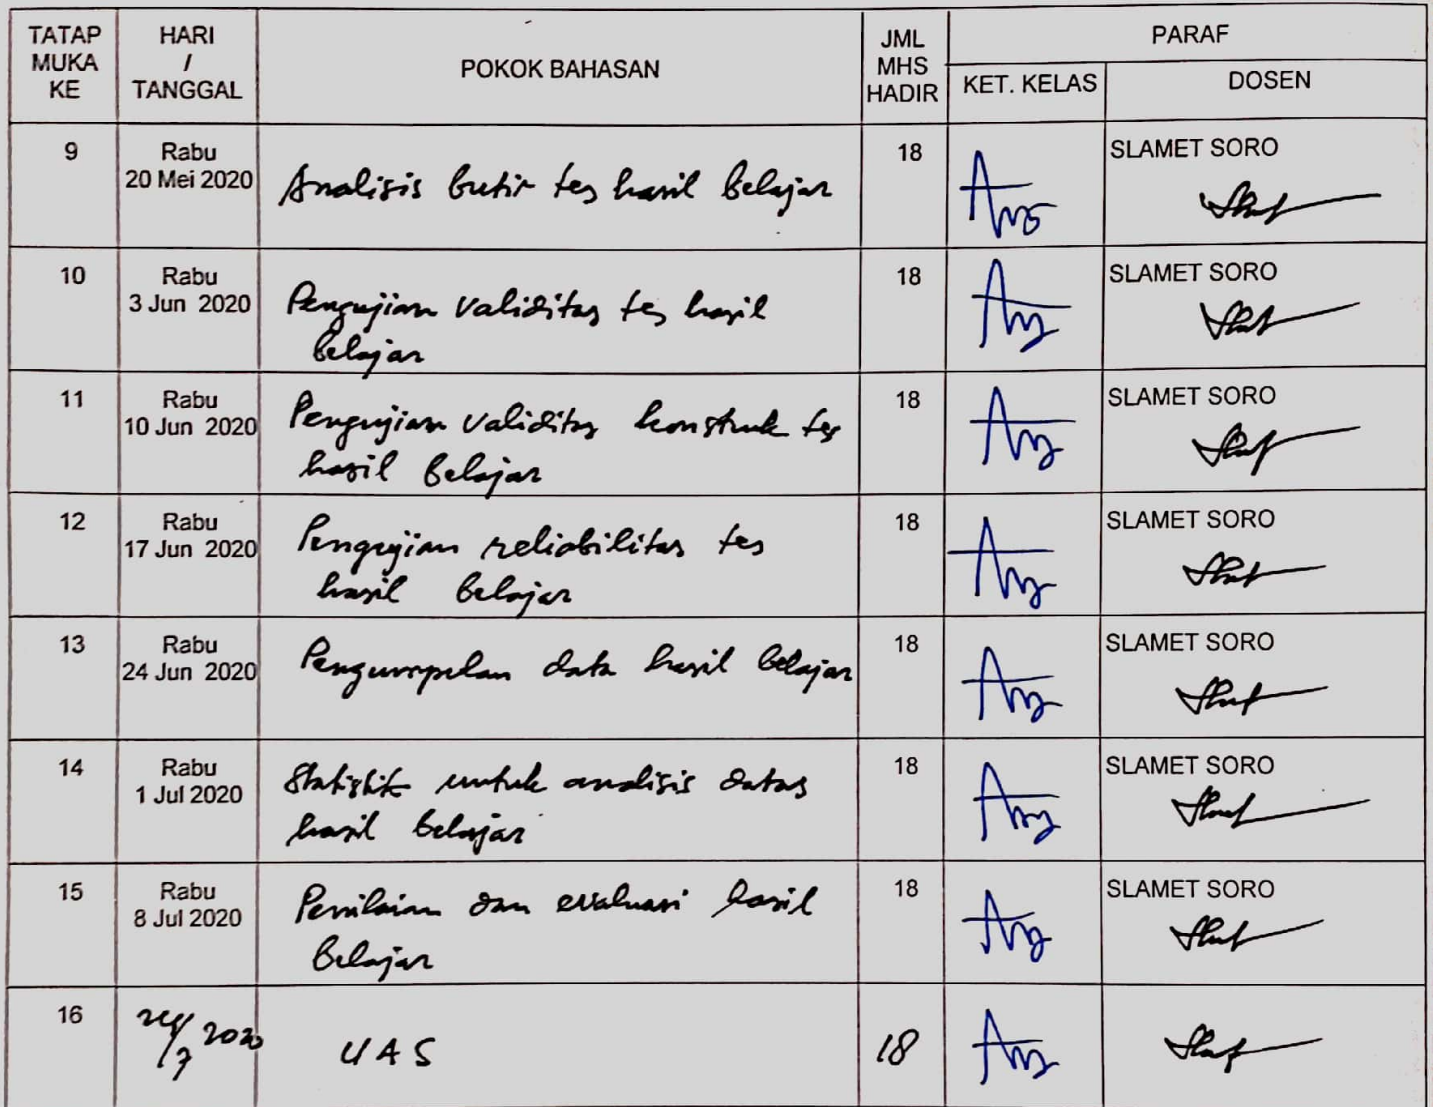 TATAP MUKA KE
HARI / TANGGAL
POKOK BAHASAN
JML MHS HADIR
PARAF
KET. KELAS
DOSEN
9
Rabu
20 Mei 2020
Analisis butir tes hasil belajar
18
SLAMET SORO
10
Rabu
3 Jun 2020
Pengujian validitas tes hasil
belajar
18
SLAMET SORO
11
Rabu
10 Jun 2020
Pengujian validitas konstruk tes
hasil belajar
18
SLAMET SORO
12
Rabu
17 Jun 2020
Pengujian reliabilitas tes
hasil belajar
18
SLAMET SORO
13
Rabu
24 Jun 2020
Pengumpulan data hasil belajar
18
SLAMET SORO
14
Rabu
1 Jul 2020
Statistik untuk analisis datas
hasil belajar
18
SLAMET SORO
15
Rabu
8 Jul 2020
Penilaian dan evaluasi hasil
belajar
18
SLAMET SORO
16
2020
UAS
18